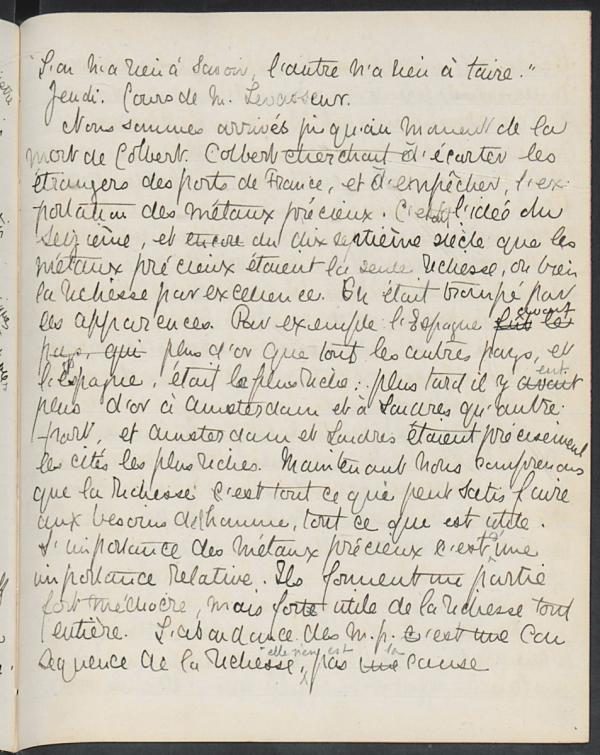 "L'un n'a rien à savoir, l'autre n'a rien à taire."
Jeudi. Cours de M. Levasseur.
Nous sommes arrivés jusqu'au moment de la
mort de Colbert. Colbert cherchant d'écarter les
étrangers des ports de France, et d'empêcher, l'ex-
portation des métaux précieux. C'était l'idée du
seizième, et encore du dix septième siècle que les
métaux précieux étaient la seule richesse, ou bien
la richesse par excellence. On était trompé par
les apparences. Par exemple l'Espagne avait
pays, qui plus d'or que tout les autres pays, et
l'Espagne, était le plus riche; plus tard il y avait eut
plus d'or à Amsterdam et à Londres qu'autre
part, et Amsterdam et Londres étaient précisément
les cités les plus riches. Maintenant nous comprenons
que la richesse c'est tout ce que peut satisfaire
aux besoins de l'homme, tout ce que est utile.
L'importance des métaux précieux c'est d'une
importance relative. Ils forment une partie
fort médiocre, mais forte utile de la richesse tout
entière. L'abondance des m.p. c'est une con
sequence de la richesse, elle n'en est pas une la cause